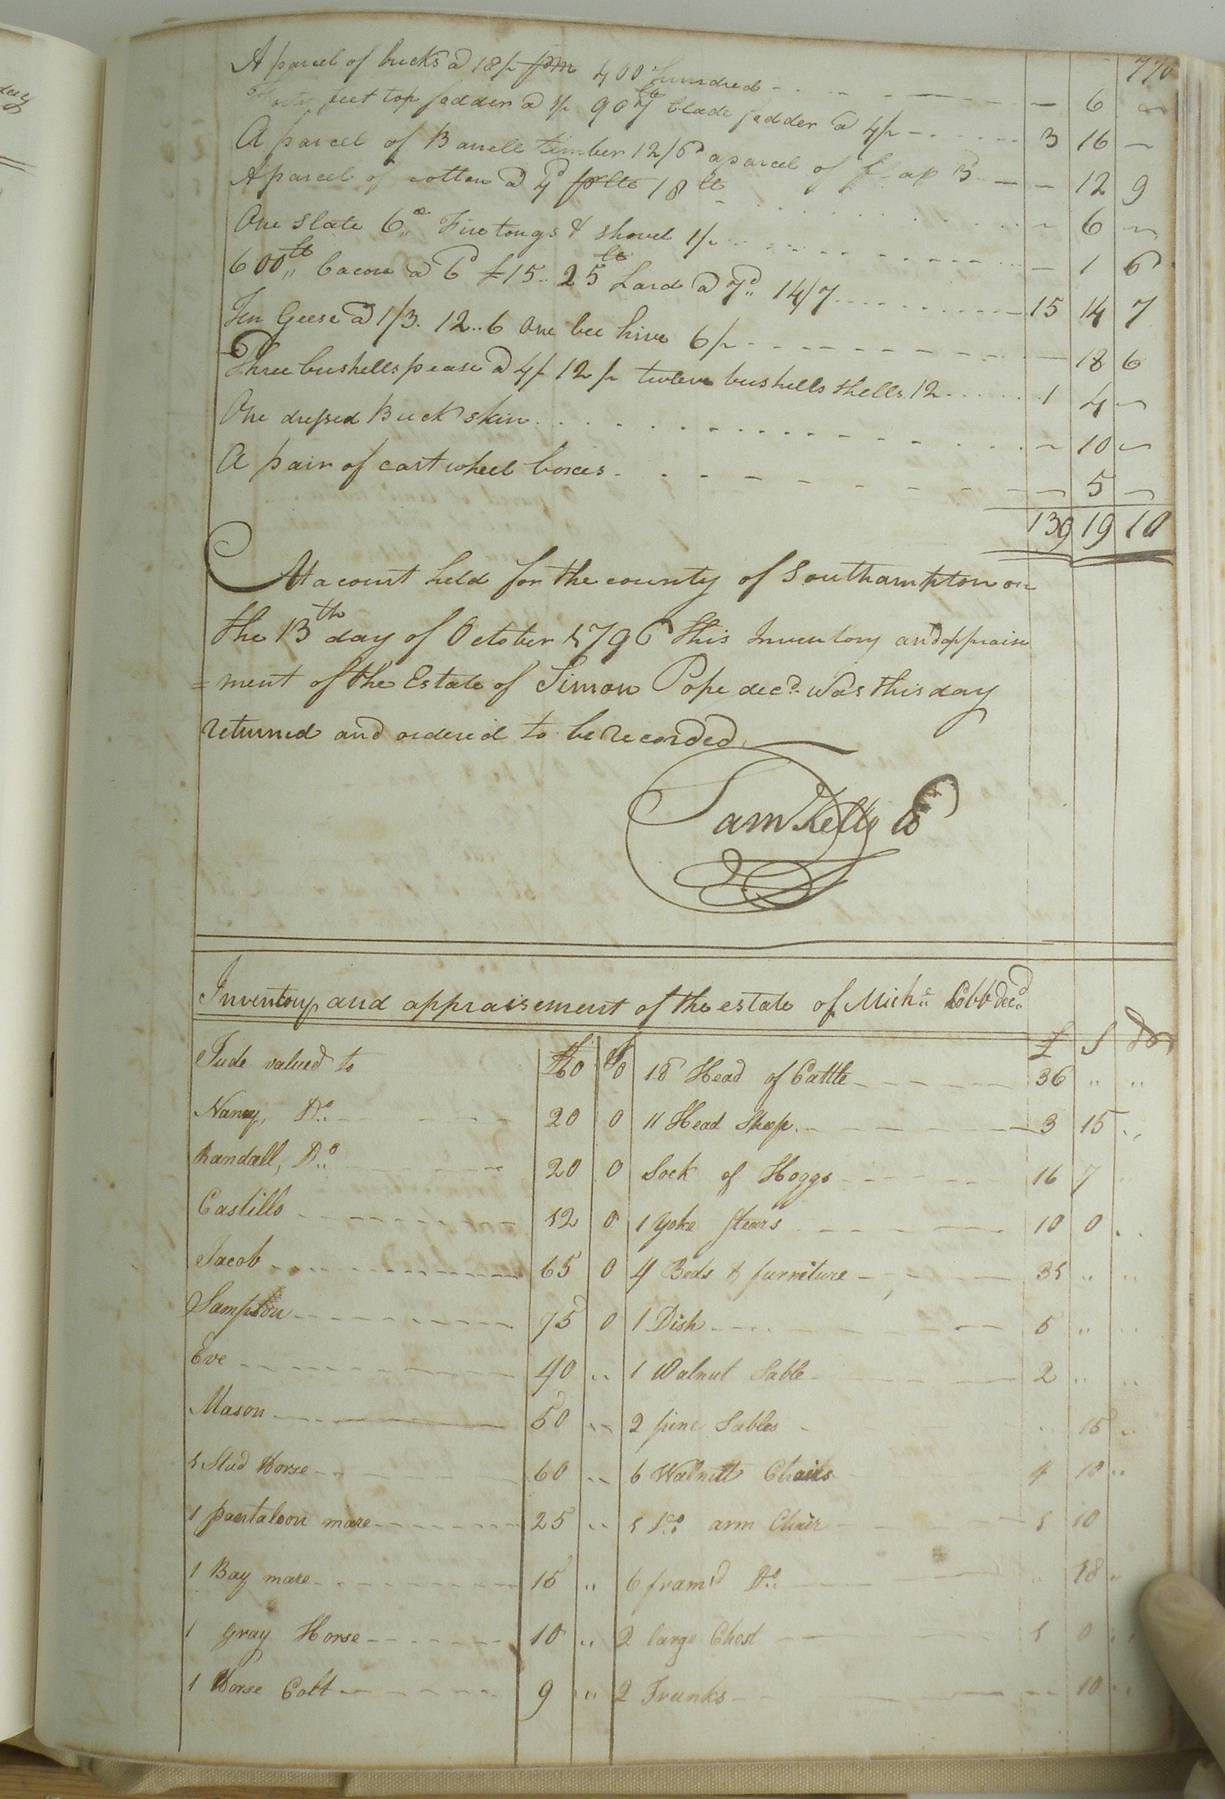 770
A parcel of bricks @ 18/- 400 hundred - 6 -
feet top fodder @ 1/- 907 lb blade fodder @ 4/- 3 16 -
A parcel of Barrell timber 12/6 a parcel of 3 - 12 9
A parcel of cotton @ 4d 18 lb - 6 -
One slate 6d.. Fire tongs & shovel 1/- - 1 6
600 lb bacon @ 6d £15.. 25 lb Lard @ 7d.. 14/7 15 14 7
Ten Geese @ 1/3. 12..6 One bee hive 6/- - 18 6
Three bushells pease @ 4/- 12/- twelve bushells shells 12 1 4 -
One dressed Buck skin - 10 -
A pair of cart wheel boxes - 5 -
139 19 10
At a court held for the county of Southampton on
the 13th day of October 1796 this Inventory and appraise
=ment of the Estate of Simon Pope decd. was this day
returned and ordered to be recorded
Sam Kello C
Inventory and appraisement of the estate of Michs. Cobb decd.
£ S D
Jude valued to 60 0 18 Head of Cattle 36 .. ..
Nancy, Do. 20 0 11 Head Sheep 3 15 ..
Randall, Do. 20 0 Sock of Hoggs 16 7
Castillo 12 0 1 Yoke Stears 10 0 ..
Jacob 65 0 4 Beds & furniture 35 .. ..
Sampson 75 0 1 Dish 5 ..
Eve 40 .. 1 Walnut Table 2 .. ..
Mason 50 .. 2 pine Tables 15 ..
1 Stud Horse 60 .. 6 Walnutt Chairs 4 10 ..
1 pantaloon mare 25 .. 1 Do. arm Chair 1 10
1 Bay mare 15 .. 6 fram'd Do. 18 ..
1 Gray Horse 10 .. 2 large Chest 1 0 ..
1 Horse Colt 9 .. 2 Trunks - 10 ..